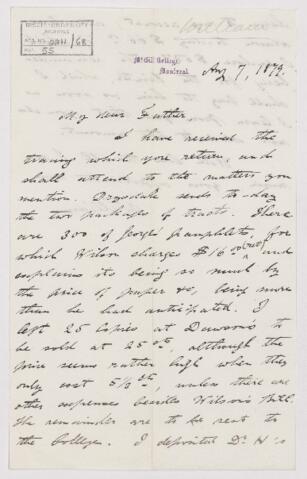 McGILL UNIVERSITY
ARCHIVES
ACC. NO. 2211/68
REF. 55
McGill College,
Montreal
Aug 7, 1879.
My dear Father
I have received the
tracing which you return, and
shall attend to the matters you
mention. Drysdale sends to-day
the two packages of tracts. There
are 300 of George's pamphlets, for
which Wilson charges $16 and
explains its being so much by
the price of paper &c, being more
than he had anticipated. I
left 25 copies at Dawson's to
be sold at 25 cts, although the
price seems rather high when they
only cost 5½ cts, unless there are
other expenses besides Wilson's bill.
The remainder are to be sent to
the College. I deposited Dr. H's